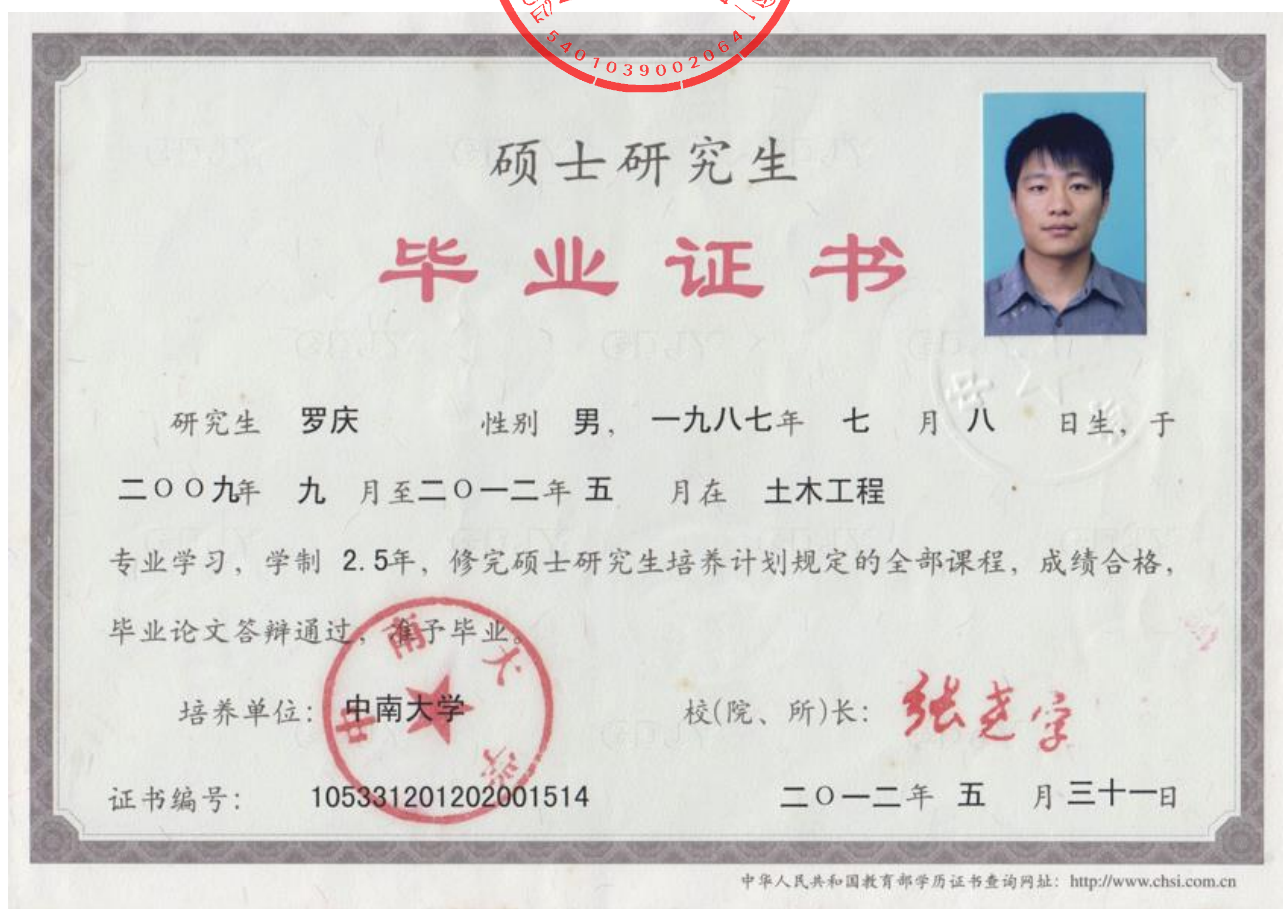 5401039002064
硕士研究生
毕业证书
研究生 罗庆 性别 男，一九八七年 七 月 八 日生，于
二〇〇九年 九 月至二〇一二年 五 月在 土木工程
专业学习，学制 2.5年，修完硕士研究生培养计划规定的全部课程，成绩合格，
毕业论文答辩通过，准予毕业。
中南大学
培养单位：中南大学 校(院、所)长：张尧学
证书编号： 105331201202001514 二〇一二年 五 月三十一日
中华人民共和国教育部学历证书查询网址：http://www.chsi.com.cn